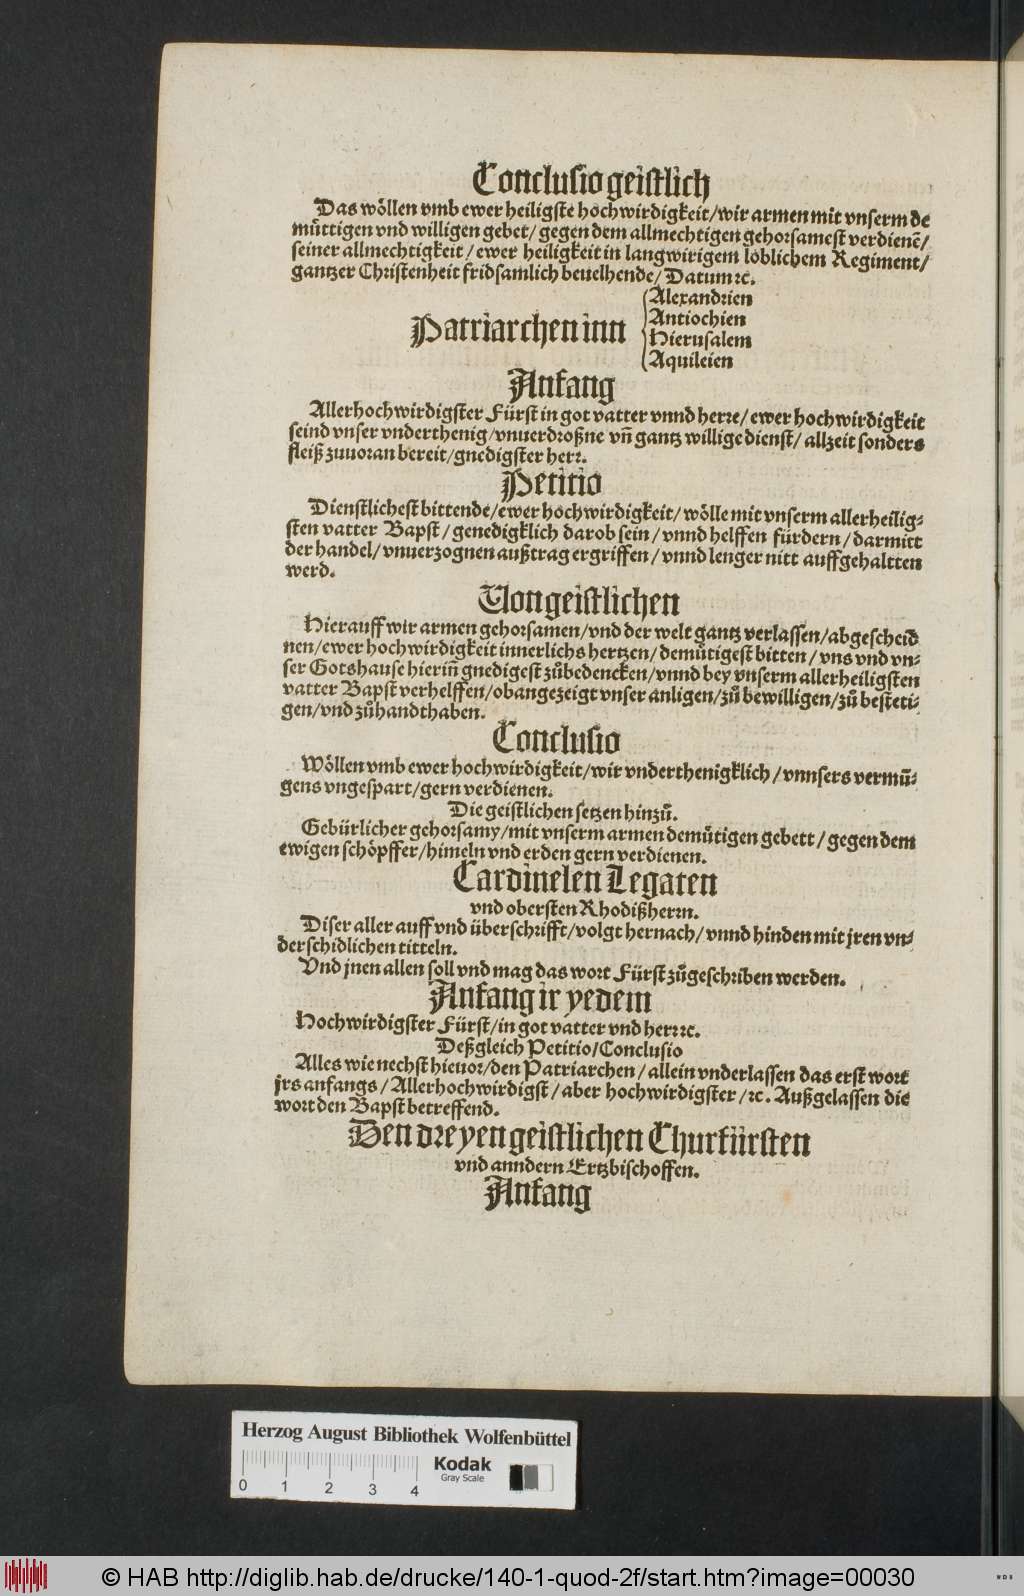 Conclusio geistlich
Das wöllen vmb ewer heiligste hochwirdigkeit/wir armen mit vnserm de
müttigen vnd willigen gebet/gegen dem allmechtigen gehorsamest verdienē/
seiner allmechtigkeit/ewer heiligkeit in langwirigem löblichem Regiment/
gantzer Christenheit fridsamlich beuelhende/Datum ꝛc.
Patriarchen inn
Alexandrien
Antiochien
Hierusalem
Aquileien
Anfang
Allerhochwirdigster Fürst in got vatter vnnd herre/ewer hochwirdigkeit
seind vnser vnderthenig/vnuerdroßne vñ gantz willige dienst/allzeit sonders
fleiß zuuoran bereit/gnedigster herr.
Petitio
Dienstlichest bittende/ewer hochwirdigkeit/wölle mit vnserm allerheilig-
sten vatter Bapst/genedigklich darob sein/vnnd helffen fürdern/darmitt
der handel/vnuerzognen außtrag ergriffen/vnnd lenger nitt auffgehaltten
werd.
Von geistlichen
Hierauff wir armen gehorsamen/vnd der welt gantz verlassen/abgescheid
nen/ewer hochwirdigkeit innerlichs hertzen/demütigest bitten/vns vnd vn-
ser Gotshause hieriñ gnedigest zůbedencken/vnnd bey vnserm allerheiligsten
vatter Bapst verhelffen/obangezeigt vnser anligen/zů bewilligen/zů besteti-
gen/vnd zůhandthaben.
Conclusio
Wöllen vmb ewer hochwirdigkeit/wir vnderthenigklich/vnnsers vermü-
gens vngespart/gern verdienen.
Die geistlichen setzen hinzů.
Gebürlicher gehorsamy/mit vnserm armen demütigen gebett/gegen dem
ewigen schöpffer/himeln vnd erden gern verdienen.
Cardinelen Legaten
vnd obersten Rhodißherrn.
Diser aller auff vnd überschrifft/volgt hernach/vnnd hinden mit jren vn-
derschidlichen titteln.
Vnd jnen allen soll vnd mag das wort Fürst zůgeschriben werden.
Anfang ir yedem
Hochwirdigster Fürst/in got vatter vnd herr ꝛc.
Deßgleich Petitio/Conclusio
Alles wie nechst hieuor/den Patriarchen/allein vnderlassen das erst wort
jrs anfangs/Allerhochwirdigst/aber hochwirdigster/ꝛc. Außgelassen die
wort den Bapst betreffend.
Den dreyen geistlichen Churfürsten
vnd anndern Ertzbischoffen.
Anfang
Herzog August Bibliothek Wolfenbüttel
Kodak
Gray Scale
0 1 2 3 4
© HAB http://diglib.hab.de/drucke/140-1-quod-2f/start.htm?image=00030